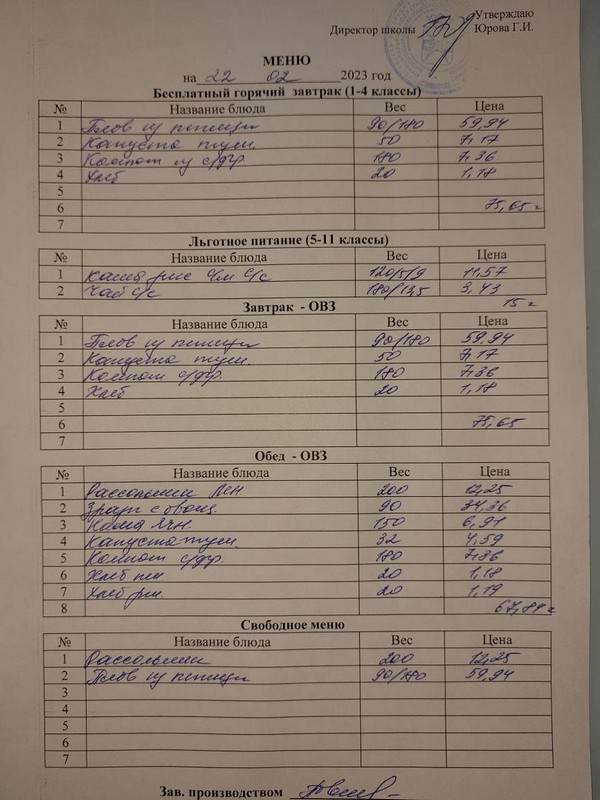 Утверждаю
Директор школы Юрова Г.И.
МЕНЮ
на 22 02 2023 год
Бесплатный горячий завтрак (1-4 классы)
№ Название блюда Вес Цена
1 Плов из птицы 90/180 59,94
2 Капуста туш. 50 7,17
3 Компот из с/фр 180 7,36
4 Хлеб 20 1,18
5
6 75,65
7
Льготное питание (5-11 классы)
№ Название блюда Вес Цена
1 Каша рис с/м с/с 120/5/9 11,57
2 Чай с/с 180/13,5 3,43
15
Завтрак - ОВЗ
№ Название блюда Вес Цена
1 Плов из птицы 90/180 59,94
2 Капуста туш. 50 7,17
3 Компот с/фр. 180 7,36
4 Хлеб 20 1,18
5
6 75,65
7
Обед - ОВЗ
№ Название блюда Вес Цена
1 Рассольник лен 200 12,25
2 Зразы с овощ. 90 34,36
3 Каша ячн. 150 6,91
4 Капуста туш. 32 4,59
5 Компот с/фр. 180 7,36
6 Хлеб пш 20 1,18
7 Хлеб рж. 20 1,19
8 67,84
Свободное меню
№ Название блюда Вес Цена
1 Рассольник 200 12,25
2 Плов из птицы 90/180 59,94
3
4
5
6
7
Зав. производством